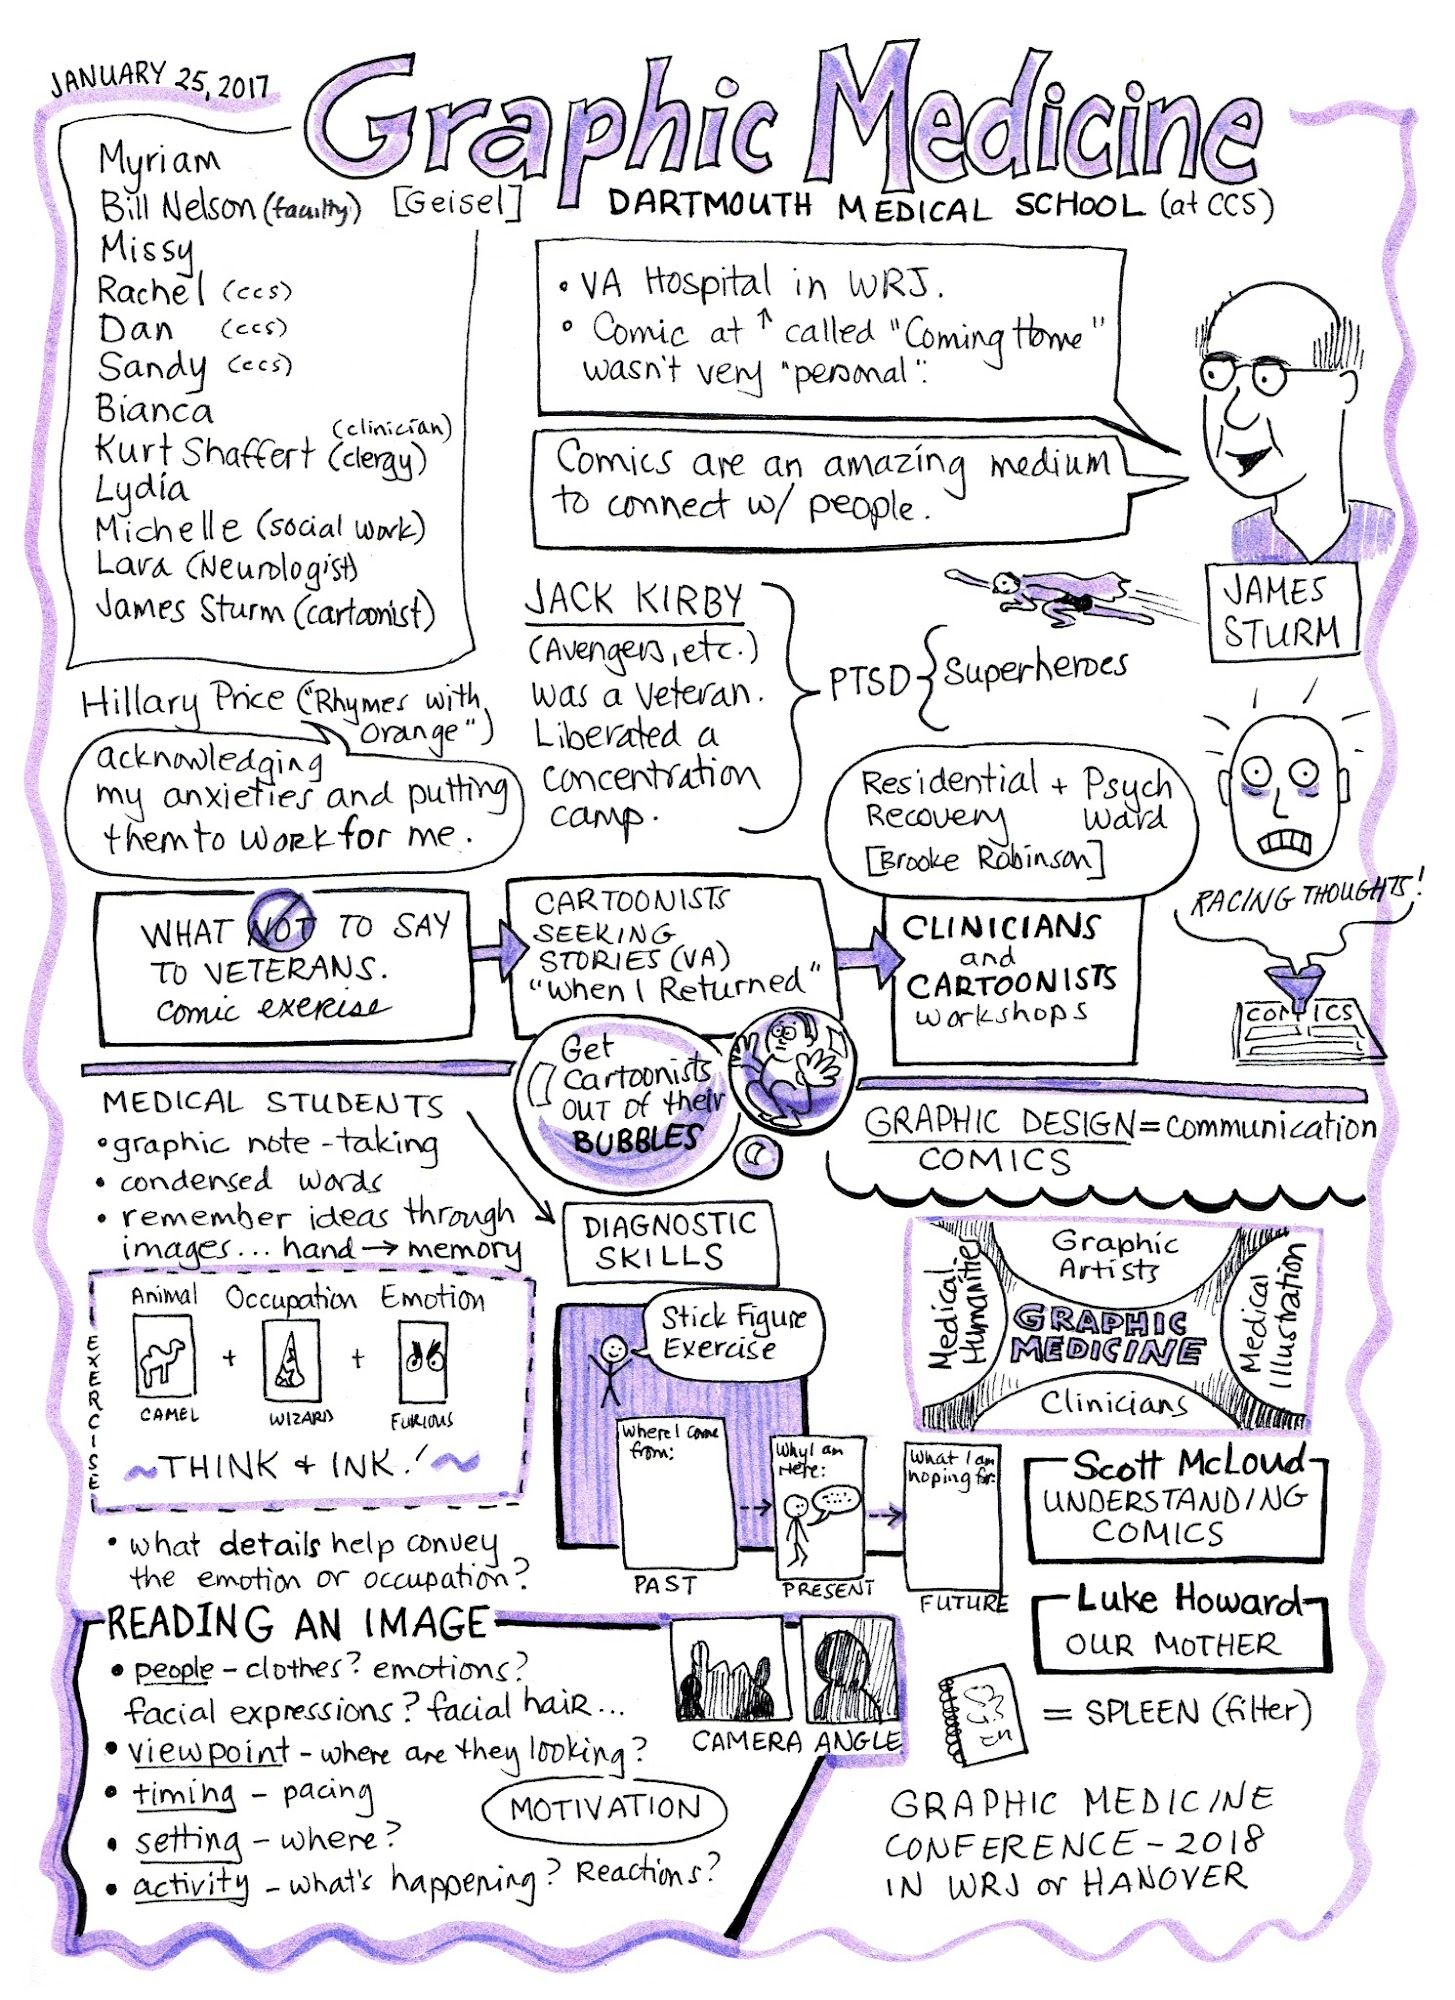 JANUARY 25, 2017
Graphic Medicine
DARTMOUTH MEDICAL SCHOOL (at CCS)
Myriam
Bill Nelson (faculty) [Geisel]
Missy
Rachel (ccs)
Dan (ccs)
Sandy (ccs)
Bianca
Kurt Shaffert (clergy) (clinician)
Lydia
Michelle (social work)
Lara (Neurologist)
James Sturm (cartoonist)
• VA Hospital in WRJ.
• Comic at ↑ called "Coming Home"
wasn't very "personal".
Comics are an amazing medium
to connect w/ people.
JAMES
STURM
Hillary Price ("Rhymes with
Orange")
acknowledging
my anxieties and putting
them to work for me.
JACK KIRBY
(Avengers, etc.)
was a veteran.
Liberated a
concentration
camp.
PTSD { Superheroes
Residential + Psych
Recovery Ward
[Brooke Robinson]
RACING THOUGHTS!
COMICS
WHAT NOT TO SAY
TO VETERANS.
comic exercise
CARTOONISTS
SEEKING
STORIES (VA)
"When I Returned"
CLINICIANS
and
CARTOONISTS
workshops
Get
Cartoonists
OUT OF their
BUBBLES
MEDICAL STUDENTS
• graphic note-taking
• condensed words
• remember ideas through
images... hand → memory
DIAGNOSTIC
SKILLS
GRAPHIC DESIGN = communication
COMICS
EXERCISE
Animal Occupation Emotion
+ +
CAMEL WIZARD FURIOUS
~THINK + INK!~
• what details help convey
the emotion or occupation?
Stick Figure
Exercise
Where I come
from:
Why I am
Here:
What I am
hoping for:
PAST PRESENT FUTURE
Graphic
Artists
Medical
Humanities
GRAPHIC
MEDICINE
Medical
Illustration
Clinicians
Scott McLoud
UNDERSTANDING
COMICS
Luke Howard
OUR MOTHER
= SPLEEN (filter)
READING AN IMAGE
• people - clothes? emotions?
facial expressions? facial hair...
• viewpoint - where are they looking?
• timing - pacing
• setting - where?
• activity - what's happening? Reactions?
MOTIVATION
CAMERA ANGLE
GRAPHIC MEDICINE
CONFERENCE - 2018
IN WRJ or HANOVER